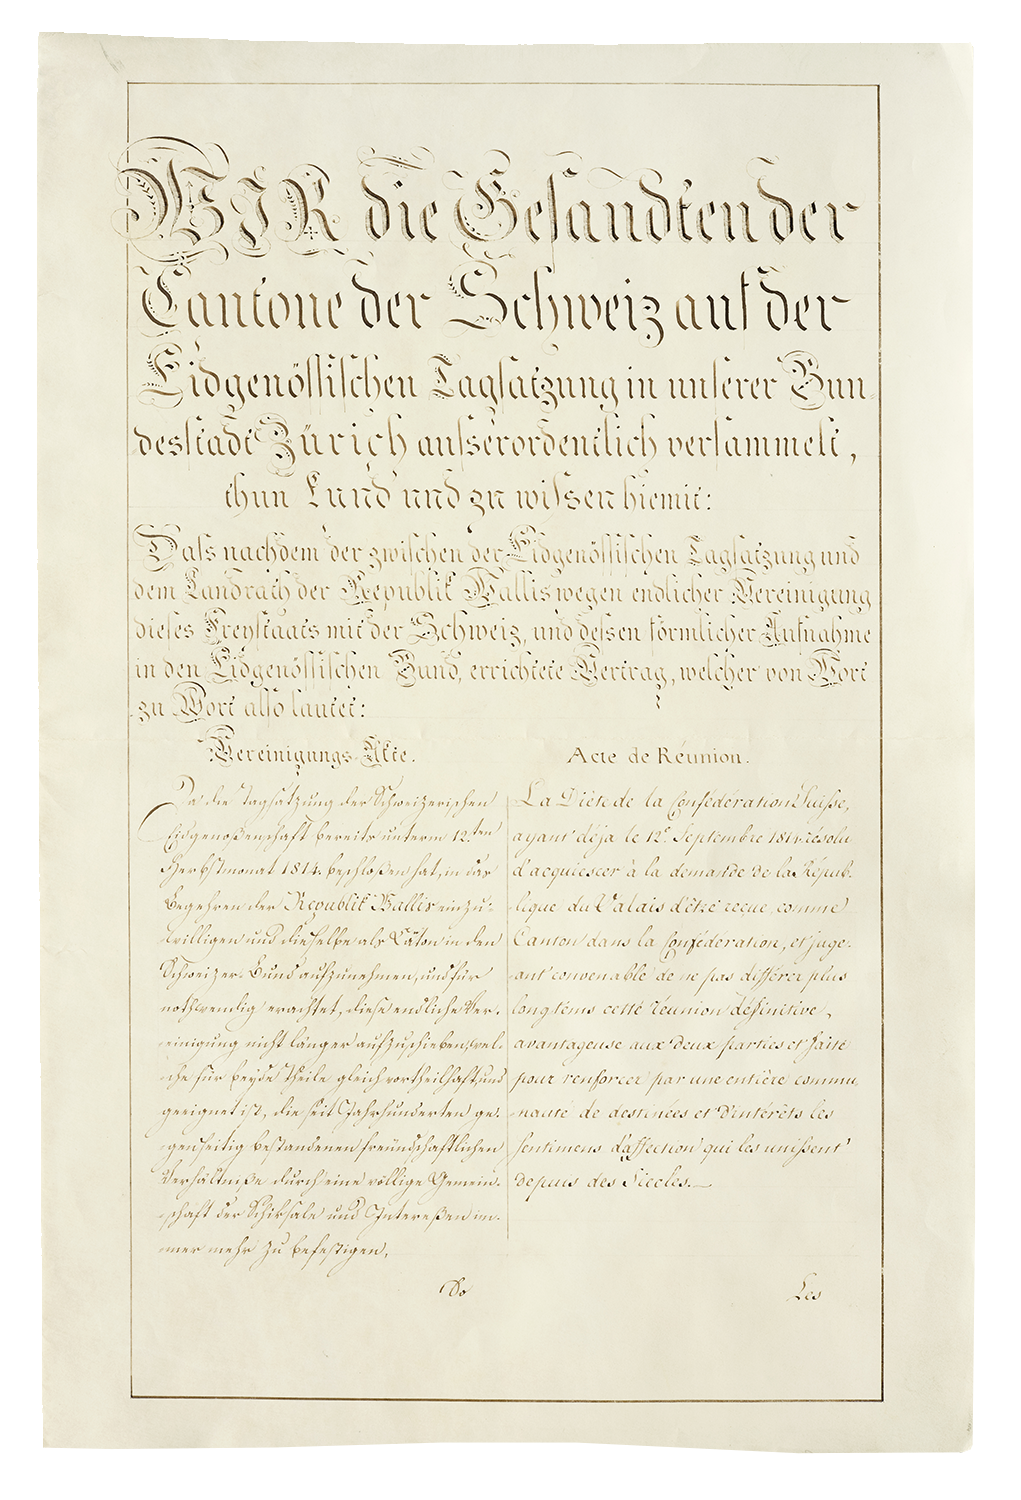 WIR die Gesandten der
Cantone der Schweiz auf der
Eidgenössischen Tagsatzung in unserer Bun-
desstadt Zürich ausserordentlich versammelt,
thun kund und zu wissen hiemit:
Dass nachdem der zwischen der Eidgenössischen Tagsatzung und
dem Landrath der Republik Wallis wegen endlicher Vereinigung
dieses Freystaats mit der Schweiz, und dessen förmlicher Aufnahme
in den Eidgenössischen Bund, errichtete Vertrag, welcher von Wort
zu Wort also lautet:
Vereinigungs-Akte.
Da die Tagsatzung der Schweizerischen
Eidgenoßenschaft bereits unterm 12.ten
Herbstmonat 1814. beschloßen hat, in das
Begehren der Republik Wallis einzu-
willigen und dieselbe als Canton in den
Schweizer-Bund aufzunehmen, und für
nothwendig erachtet, diese endliche Ver-
einigung nicht länger aufzuschieben, wel-
che für beyde Theile gleich vortheilhaft, und
geeignet ist, die seit Jahrhunderten ge-
genseitig bestandenen freündschaftlichen
Verhältniße durch eine völlige Gemein-
schaft der Schiksale und Intereßen im-
mer mehr zu befestigen,
So
Acte de Réunion.
La Diète de la Confédération Suisse,
ayant déja le 12e. Septembre 1814. résolu
d'acquiescer à la demande de la Répub-
lique du Valais d'être reçue, comme
Canton dans la Confédération, et juge-
ant convenable de ne pas différer plus
longtems cette réunion définitive,
avantageuse aux deux parties et faite
pour renforcer par une entière commu-
nauté de destinées et d'intérêts les
sentimens d'affection qui les unissent
depuis des Siecles.—
Les